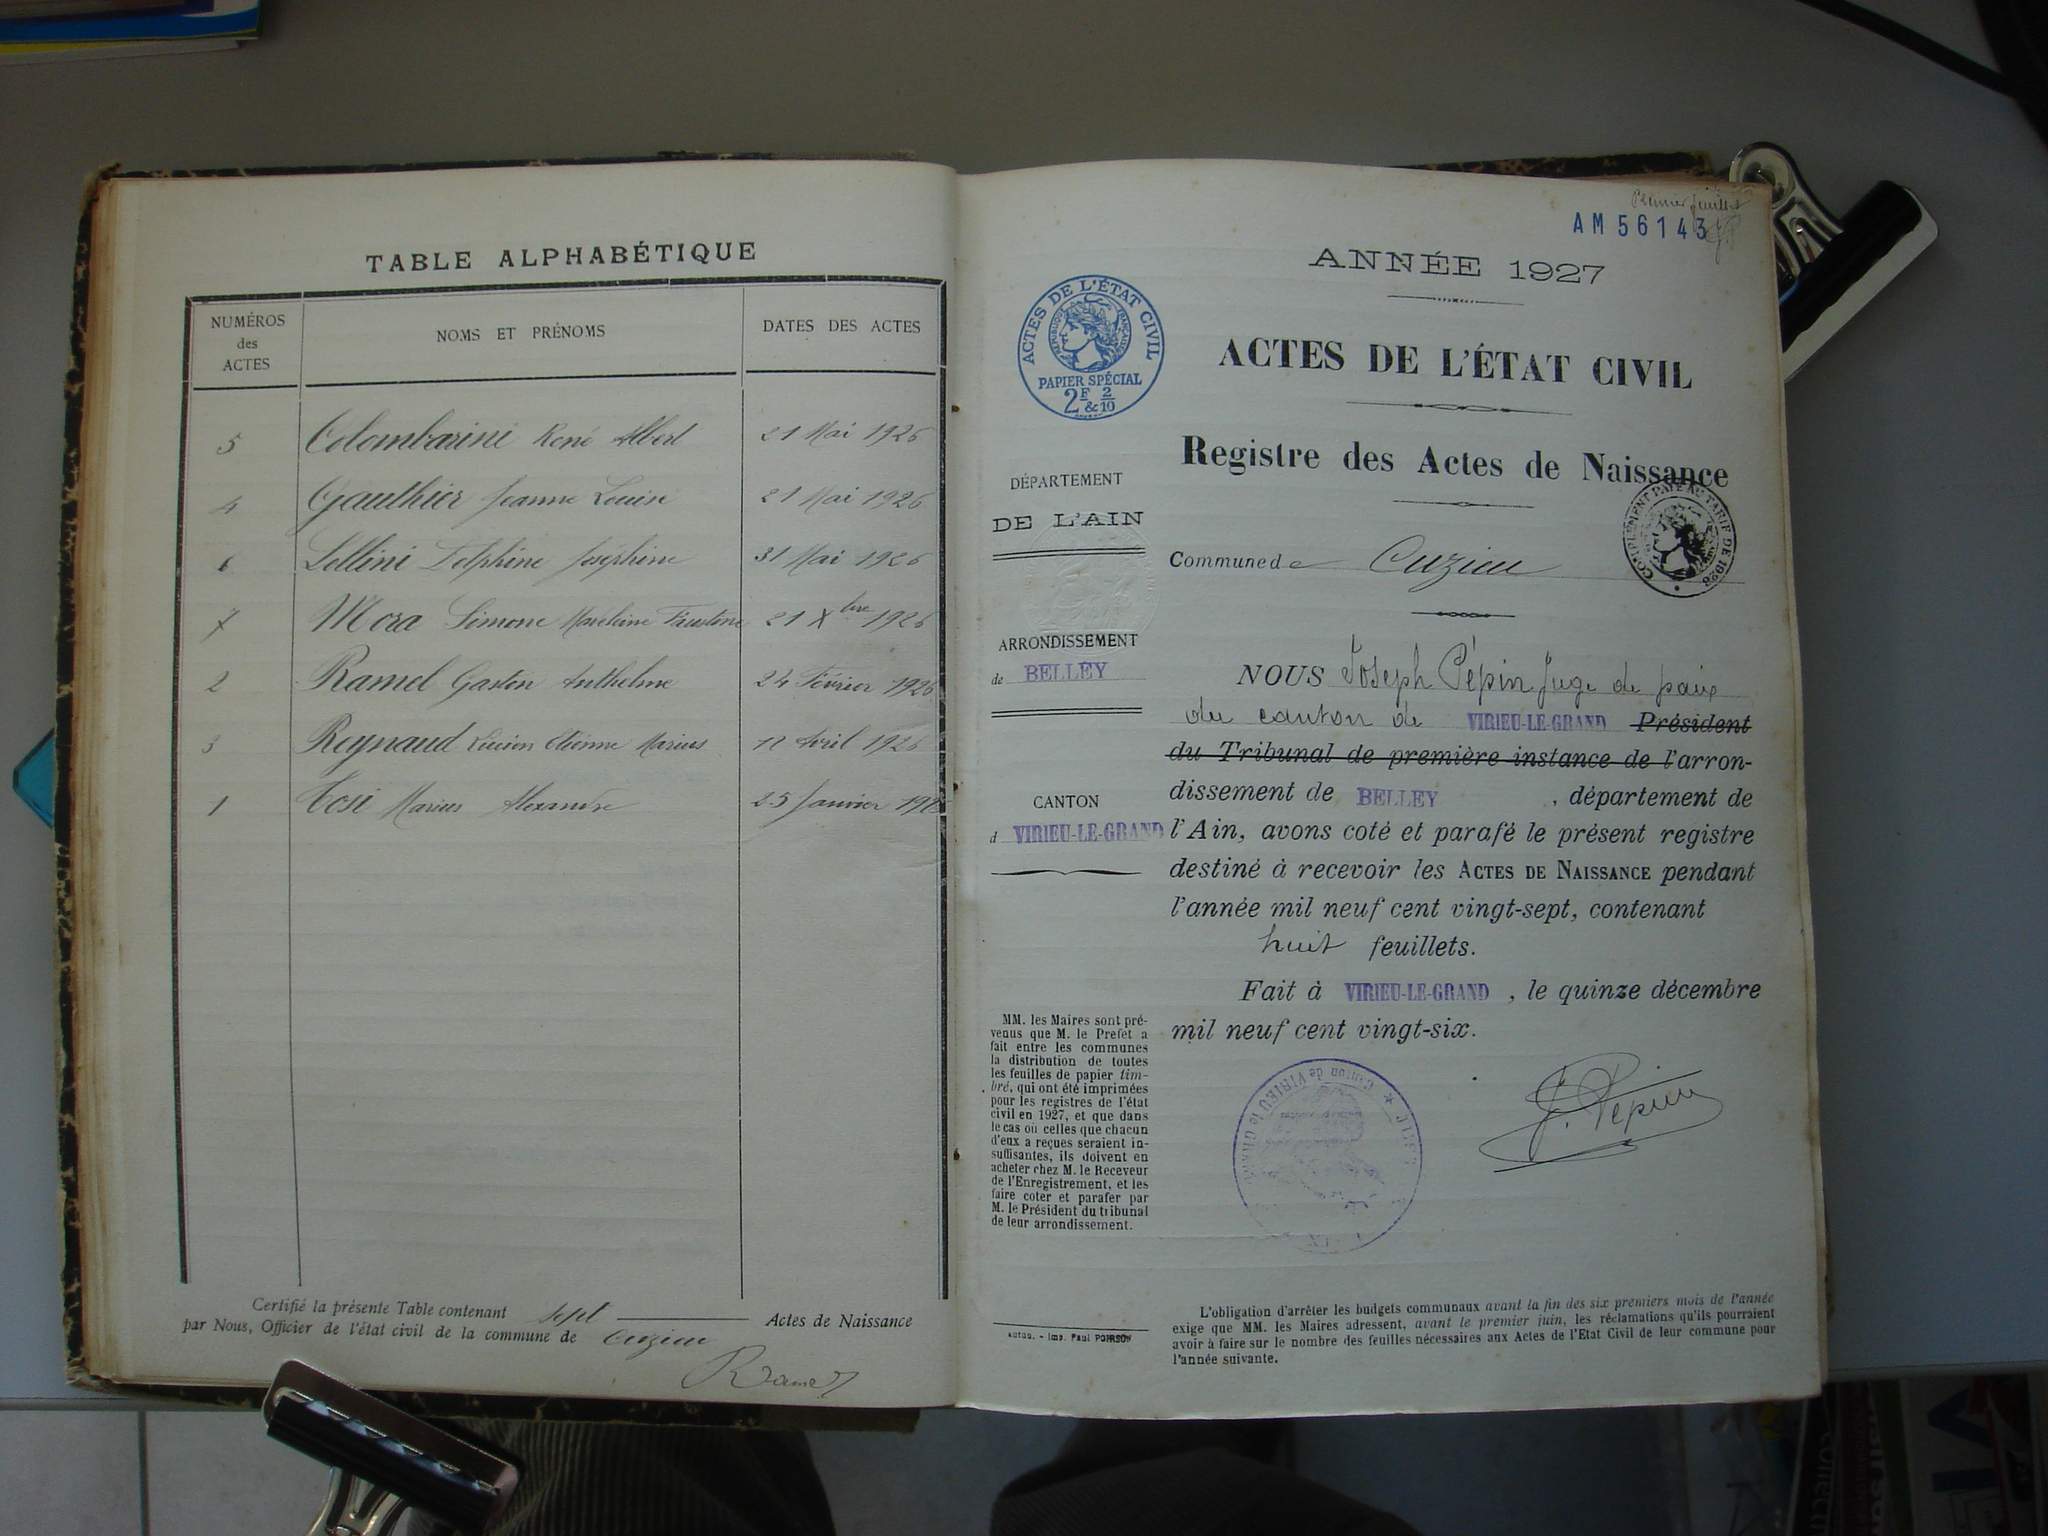 TABLE ALPHABÉTIQUE
NUMÉROS des ACTES NOMS ET PRÉNOMS DATES DES ACTES
5 Colombarini René Albert 21 Mai 1926
4 Gauthier Jeanne Louise 21 Mai 1926
6 Lellini Delphine Joséphine 31 Mai 1926
7 Mora Simone Madeleine Faustine 21 Xbre 1926
2 Ramel Gaston Anthelme 24 Février 1926
3 Reynaud Lucien Etienne Marius 12 Avril 1926
1 Tosi Marius Alexandre 25 Janvier
Certifié la présente Table contenant sept Actes de Naissance
par Nous, Officier de l'état civil de la commune de Cuzieu
Ramel
Premier feuillet
AM 56143
ANNÉE 1927
ACTES DE L'ÉTAT CIVIL
RÉPUBLIQUE FRANÇAISE
PAPIER SPÉCIAL
2F & 2/10
ACTES DE L'ÉTAT CIVIL
Registre des Actes de Naissance
COMPLÉMENT PAYÉ AU TARIF DE 1926
DÉPARTEMENT
DE L'AIN
Commune de Cuzieu
ARRONDISSEMENT
de BELLEY
CANTON
d VIRIEU-LE-GRAND
NOUS Joseph Pépin Juge de paix
du canton de VIRIEU-LE-GRAND Président
du Tribunal de première instance de l'arron-
dissement de BELLEY, département de
l'Ain, avons coté et parafé le présent registre
destiné à recevoir les ACTES DE NAISSANCE pendant
l'année mil neuf cent vingt-sept, contenant
huit feuillets.
Fait à VIRIEU-LE-GRAND, le quinze décembre
mil neuf cent vingt-six.
J. Pépin
Canton de VIRIEU le GRAND
MM. les Maires sont pré-
venus que M. le Prefet a
fait entre les communes
la distribution de toutes
les feuilles de papier tim-
bré, qui ont été imprimées
pour les registres de l'état
civil en 1927, et que dans
le cas où celles que chacun
d'eux a reçues seraient in-
suffisantes, ils doivent en
acheter chez M. le Receveur
de l'Enregistrement, et les
faire coter et parafer par
M. le Président du tribunal
de leur arrondissement.
- Imp. Paul POIRSON
L'obligation d'arrêter les budgets communaux avant la fin des six premiers mois de l'année
exige que MM. les Maires adressent, avant le premier juin, les réclamations qu'ils pourraient
avoir à faire sur le nombre des feuilles nécessaires aux Actes de l'Etat Civil de leur commune pour
l'année suivante.